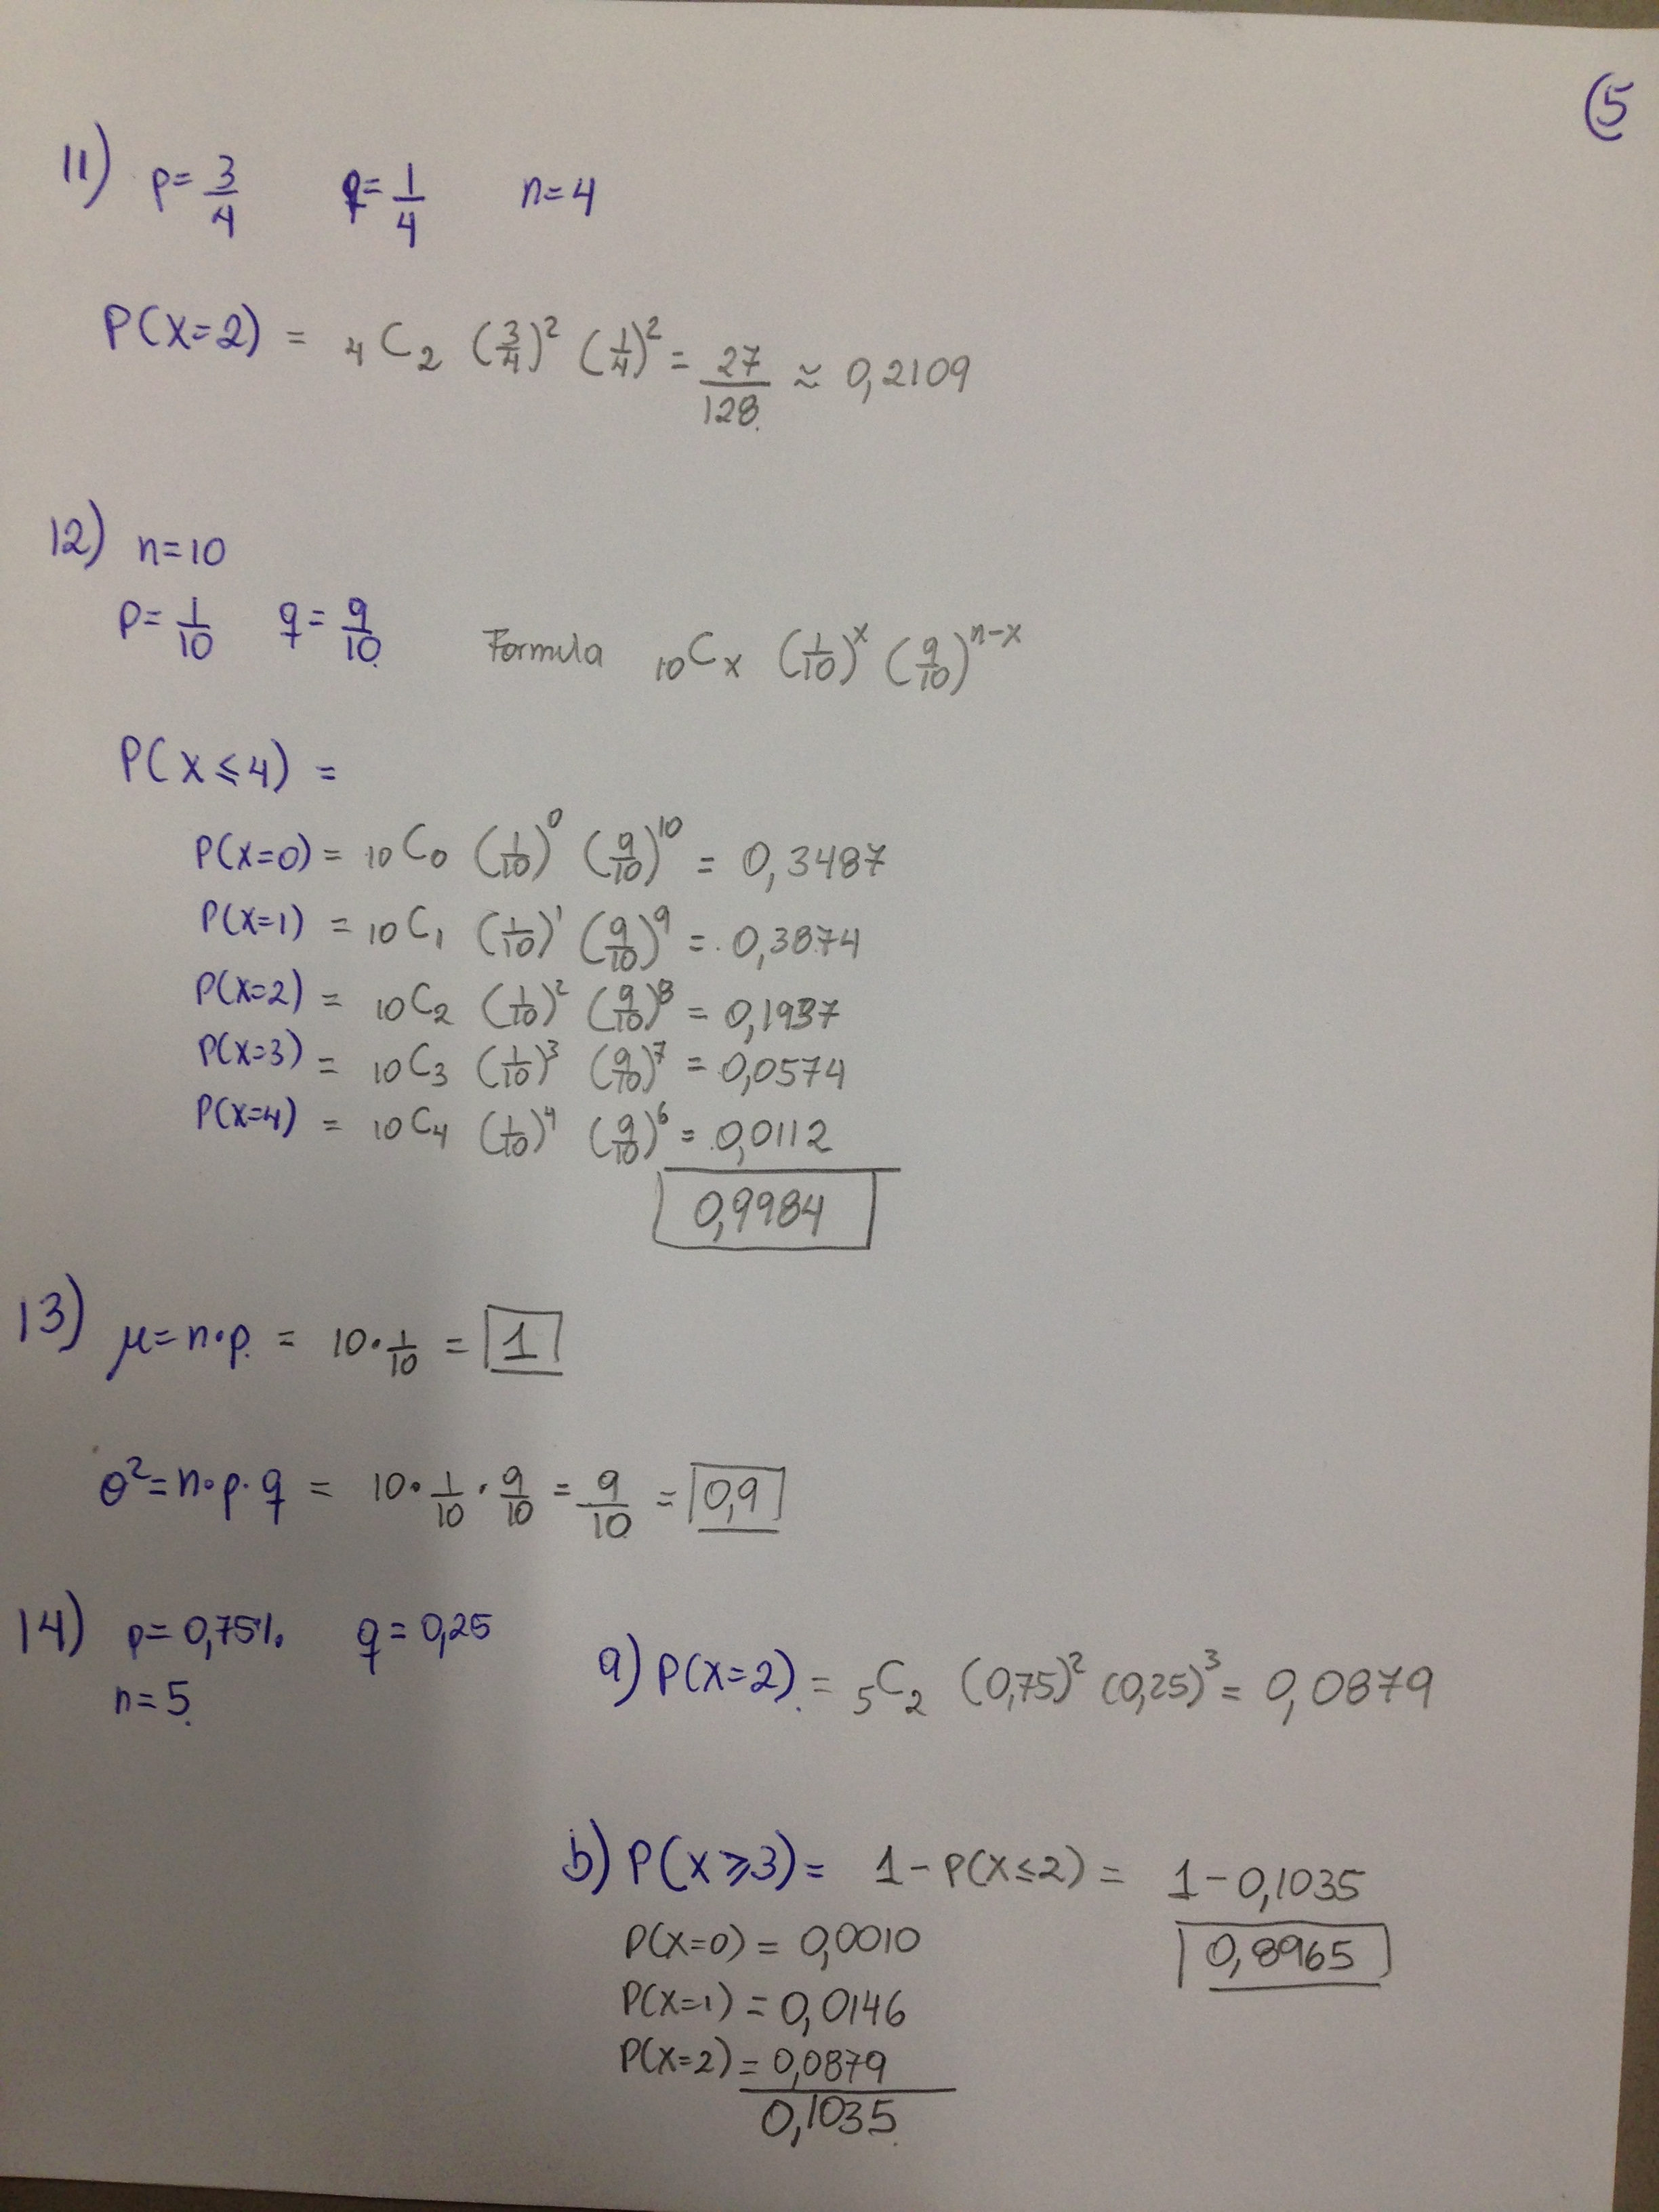 (5
11) p = 3/4 q = 1/4 n = 4
P(X=2) = ₄C₂ (3/4)² (1/4)² = 27/128 ≈ 0,2109
12) n = 10
p = 1/10 q = 9/10 Formula ₁₀Cₓ (1/10)ˣ (9/10)ⁿ⁻ˣ
P(X ≤ 4) =
P(X=0) = ₁₀C₀ (1/10)⁰ (9/10)¹⁰ = 0,3487
P(X=1) = ₁₀C₁ (1/10)¹ (9/10)⁹ = 0,3874
P(X=2) = ₁₀C₂ (1/10)² (9/10)⁸ = 0,1937
P(X=3) = ₁₀C₃ (1/10)³ (9/10)⁷ = 0,0574
P(X=4) = ₁₀C₄ (1/10)⁴ (9/10)⁶ = 0,0112
0,9984
13) μ = n·p = 10·1/10 = 1
σ² = n·p·q = 10·1/10·9/10 = 9/10 = 0,9
14) p = 0,75%. q = 0,25
n = 5
a) P(X=2) = ₅C₂ (0,75)² (0,25)³ = 0,0879
b) P(X ≥ 3) = 1 - P(X ≤ 2) = 1 - 0,1035
0,8965
P(X=0) = 0,0010
P(X=1) = 0,0146
P(X=2) = 0,0879
0,1035